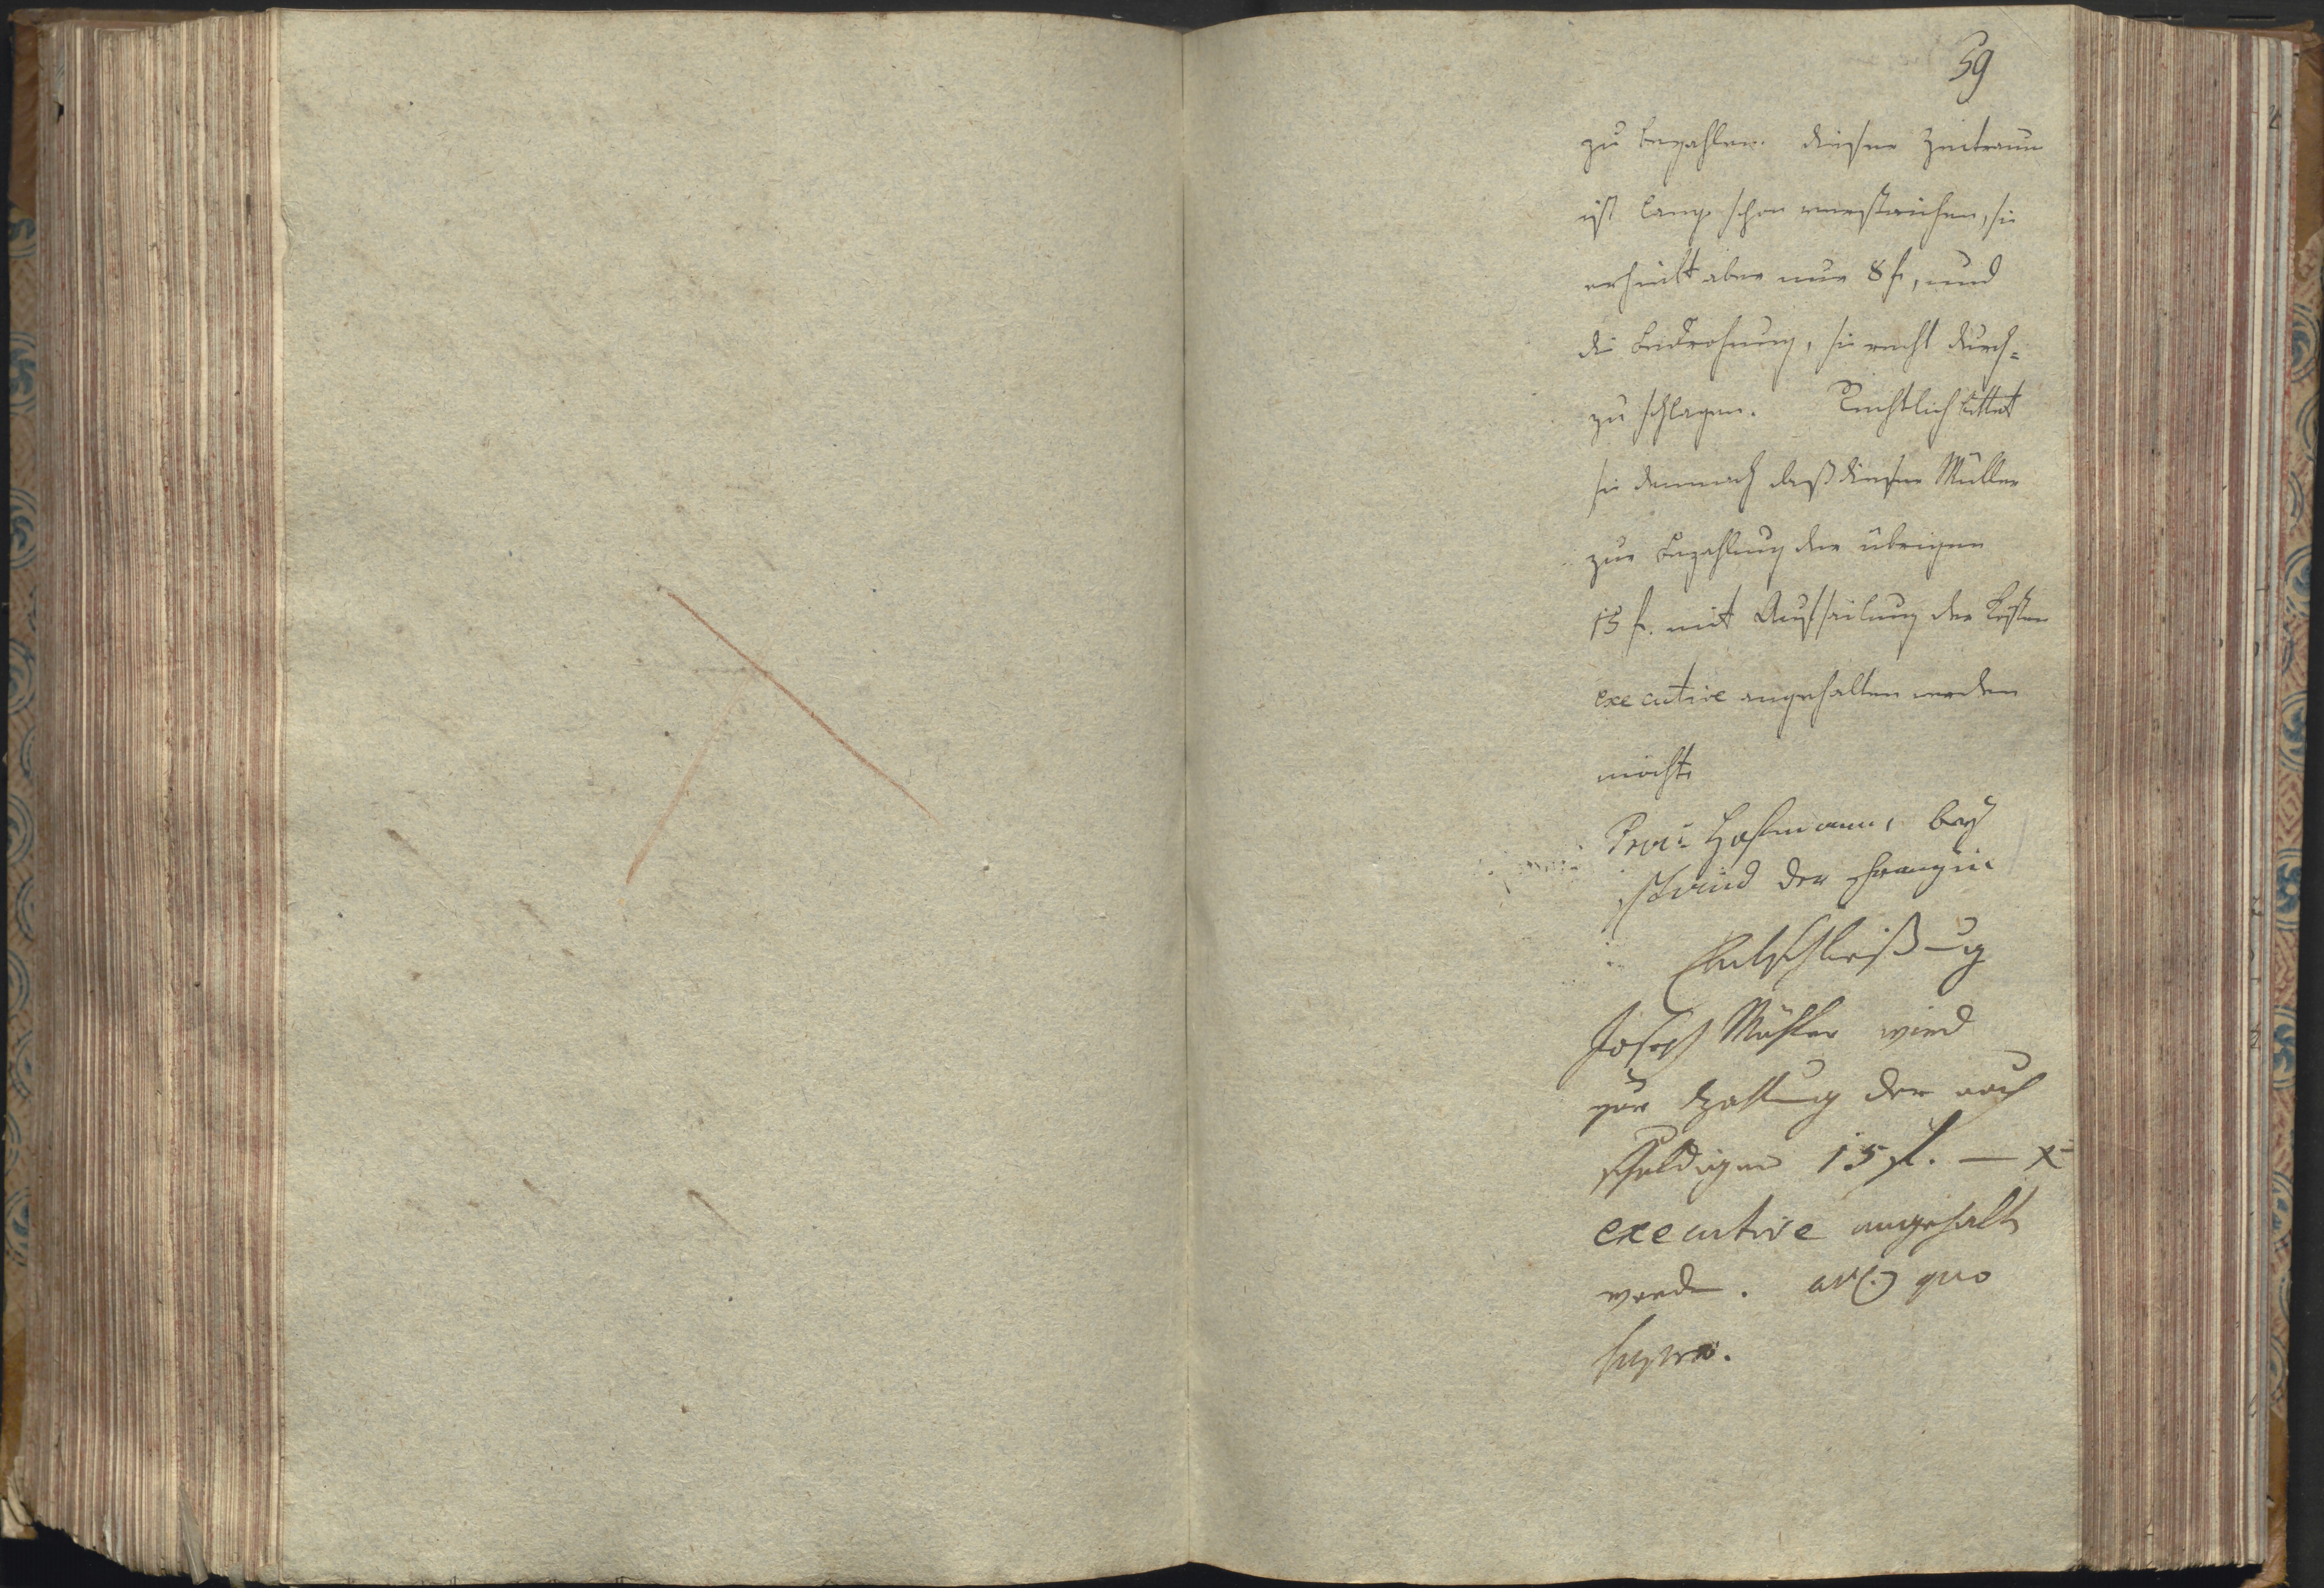 59
zu bezahlen. dieser Zeitraum
ist lang schon verstrichen, sie
erhielt aber nur 8 f, und
die Bedrohung, sie recht durch=
zu schlagen. Rechtlich bittet
sie demnach daß dieser Müller
zur Bezahlung der übrigen
15 f. mit Ausheilung der Kosten
executive angehalten werden
möchte
Hofmann, bey
stand der
Entschließung
Joseph Müller wird
zur Zahlung der noch
schuldigen 15 fl. — x
executive angehalten
werden. quo
supra.